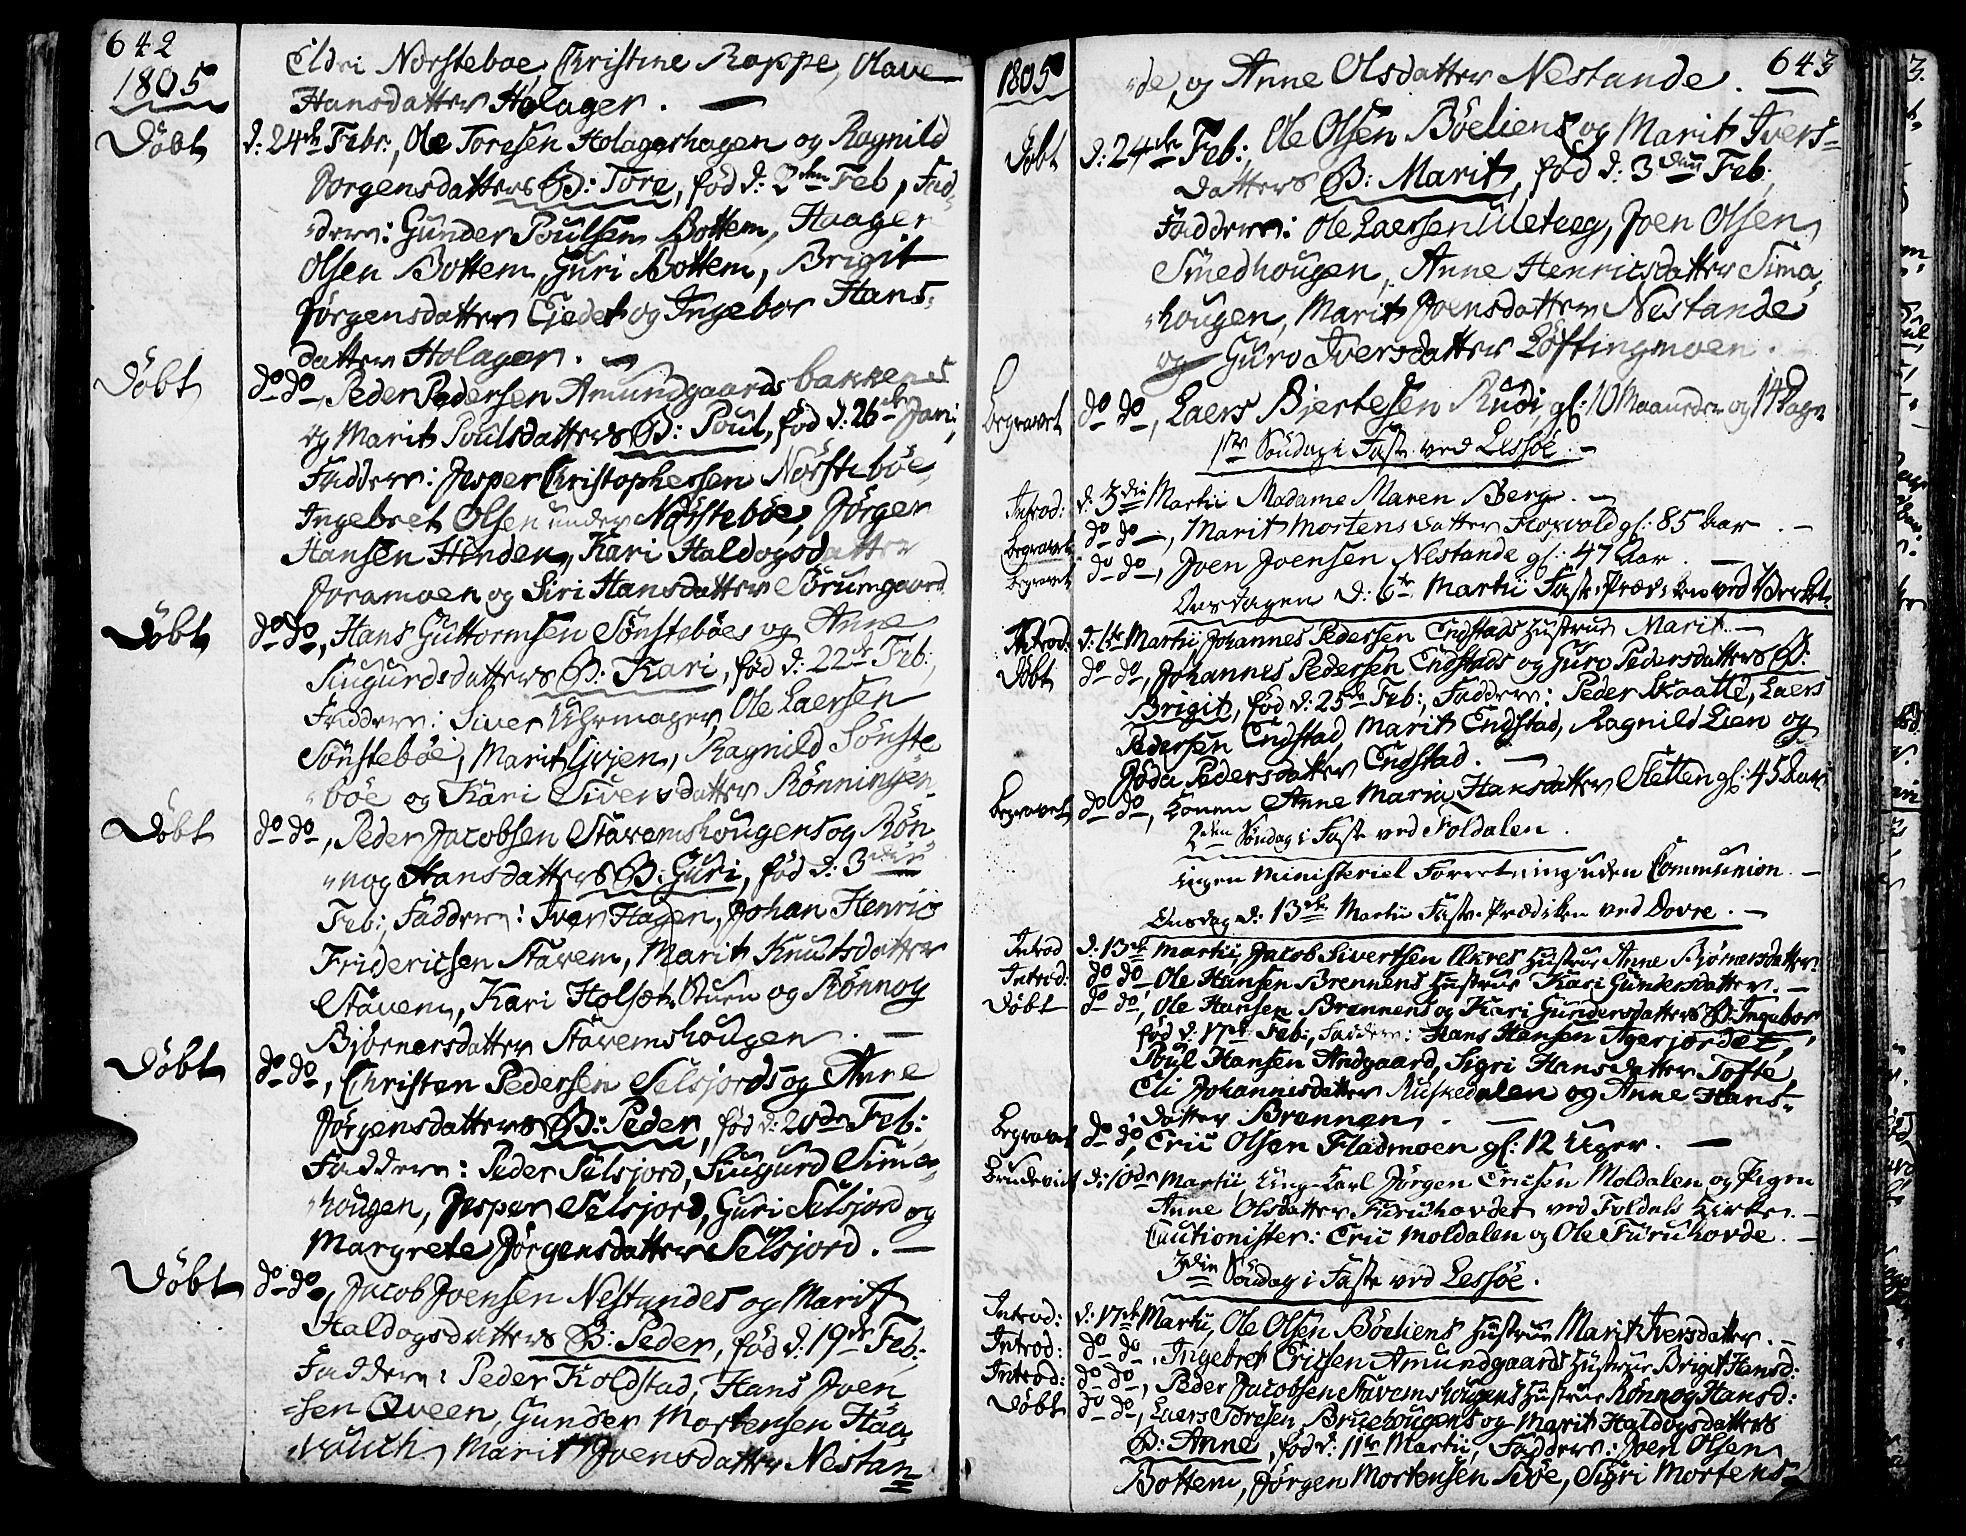 642
1805
Eldri Norsteboe, Christine Rappe, Olave
Hansdatter Holager. —
Döbt d: 24de Febr:, Ole Toresen Holagershagen og Ragnild
Jorgensdatters B: Tore, fød d: 2den Feb, Fad-
dere: Gunder Poulsen Bottem, Haager
Olsen Bottem, Guri Bottem, Brigit
Jørgensdatter Ejedet og Ingebor Hans-
datter Holager. —
Döbt do do, Peder Pedersen Amundgaards bakkens
og Marit Poulsdatters B: Poul, fød d: 26de Jan:,
Faddere: Jesper Christophersen Nörsteböe,
Ingebret Olsen under Nörsteböe, Jörgen
Hansen Hinden, Kari Haldogsdatter
Joramoen og Siri Hansdatter Börumgaard
Döbt do do, Hans Guttormsen Sönsteböes og Anne
Siugurdsdatters B: Kari, fød d: 22de Feb:,
Faddere: Siver Uhrmager, Ole Laersen
Sönsteböe, Marit Gvjen, Ragnild Sönste
böe og Kari Siversdatter Rönningen.
Döbt do do, Peder Jacobsen Stavemshougens og Rön
nog Hansdatters B: Guri, fød d: 3die
Feb:, Faddere: Iver Hagen, Johan Henric
Fridericsen Stavem, Marit Knutsdatter
Stavem, Kari Holseter Stuen og Rönnog
Björnersdatter Stavemshougen. —
Döbt do do, Christen Pedersen Selsjords og Anne
Jörgensdatters B: Peder, fød d: 20de Feb:,
Faddere: Peder Selsjord, Siugurd Sime-
hougen, Jesper Selsjord, Guri Selsjord og
Margrete Jörgensdatter Selsjord. —
Döbt do do, Jacob Joensen Nestandes og Marit
Haldogsdatters B: Peder, fød d: 19de Feb:,
Faddere: Peder Koldstad, Hans Joen
sen Qveen, Gunder Mortensen Haa-
vouch, Marit Joensdatter Nestan-
1805
643
de, og Anne Olsdatter Nestande.
Döbt d: 24de Feb:, Ole Olsen Böeliens og Marit Ivers-
datters B: Marit, fød d: 3die Feb,
Faddere: Ole Laersen Uletveg, Joen Olsen
Smedhougen, Anne Henricsdatter Sima-
hougen, Marit Joensdatter Nestande
og Guro Iversdatter Löftingmoen.
Begravet do do, Laers Bjertesen Rudi, gl: 10 Maaneder og 14 Dage
1ste Söndag i Faste ved Lessöe. —
Introd: d: 3die Martii Madame Maren Berg. —
Begravet do do —, Marit Mortensdatter Hoxvold gl: 85 Aar. —
Begravet do do, Joen Joensen Nestande gl: 47 Aar. —
Onsdagen d: 6te Martii Faste-Prædiken ved Verket.
Introd: d: 6te Martii, Johannes Pedersen Endstads Hustrue Marit. —
Döbt do do, Johannes Pedersen Endstads og Guro Pedersdatters B:
Brigit, fød d: 25de Feb:, Faddere: Peder Skaatte, Laers
Pedersen Endstad, Marit Endstad, Ragnild Lien og
Jöda Pedersdatter Endstad. —
Begravet do do, Konen Anne Maria Hansdatter Sletten gl: 45 Aar
2den Söndag i Faste ved Foldalen.
ingen Ministeriel Forretning uden Communion. —
Onsdag d: 13de Martii Faste-Prædiken ved Dovre. —
Introd d: 13de Martii, Jacob Sivertsen Økres Hustrue Anne Björnersdatter.
Introd: do do Ole Hansen Brennens Hustrue Kari Gundersdatter. —
Döbt do do, Ole Hansen Brennens og Kari Gundersdatters B: Ingebor
fød d: 17de Feb:, Faddere: Hans Hansen Agerjordet,
Poul Hansen Andgaard, Sigri Hansdatter Tofte,
Eli Johannisdatter Ruskedalen og Anne Hans-
datter Brennen. —
Begravet do do, Eric Olsen Fladmoen gl: 12 Uger. —
Brudeviet d: 10de Martii, Ung-Karl Jørgen Ericsen Moldalen og Pigen
Anne Olsdatter Furuhovdet ved Foldals Kirke. —
Cautionister: Eric Moldalen og Ole Furuhovde. —
3die Söndag i Faste ved Lessöe.
Introd: d: 17de Martii, Ole Olsen Böeliens Hustrue Marit Iversdatter. —
Introd: do do, Ingebret Ericsen Amundgaards Hustrue Brigit Hansd:
Introd: do do, Peder Jacobsen Stavemshougens Hustrue Rönnog Hansd:
Döbt do do, Laers Toresen Bruehougens og Marit Haldogsdatters
B: Anne, fød d: 11te Martii, Faddere: Joen Olsen
Bottem, Jörgen Mortensen Böe, Sigri Mortens-